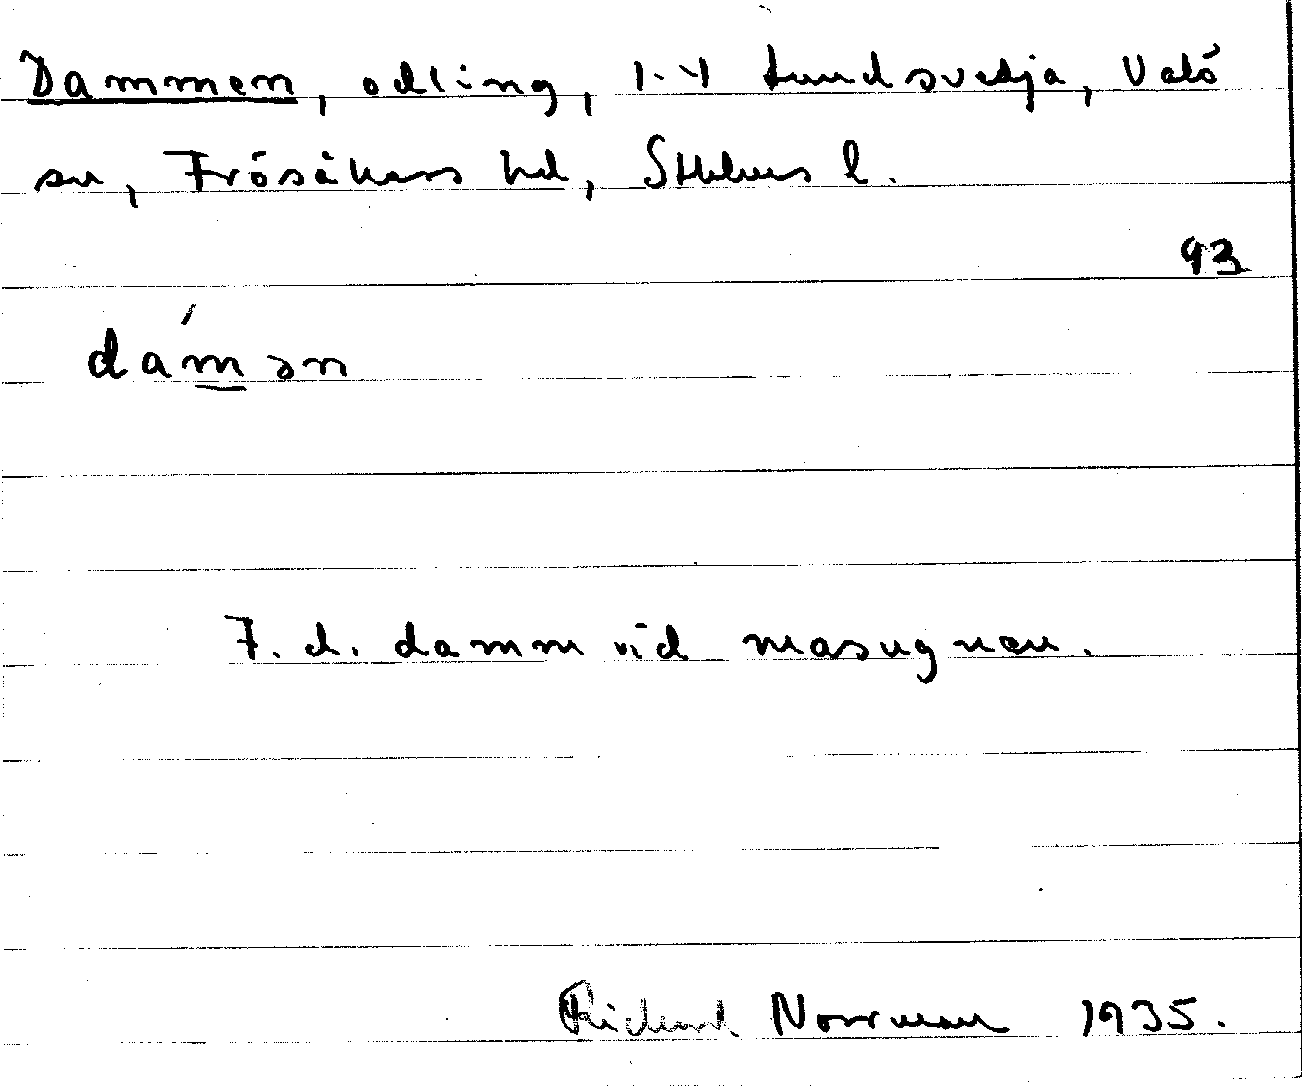 Dammen, odling, 1-4 Lundsvedja, Valö
sn, Frösåkers hd, Sthlms l.
93
dámən
F. d. damm vid masugnen.
Richard Norrman 1935.